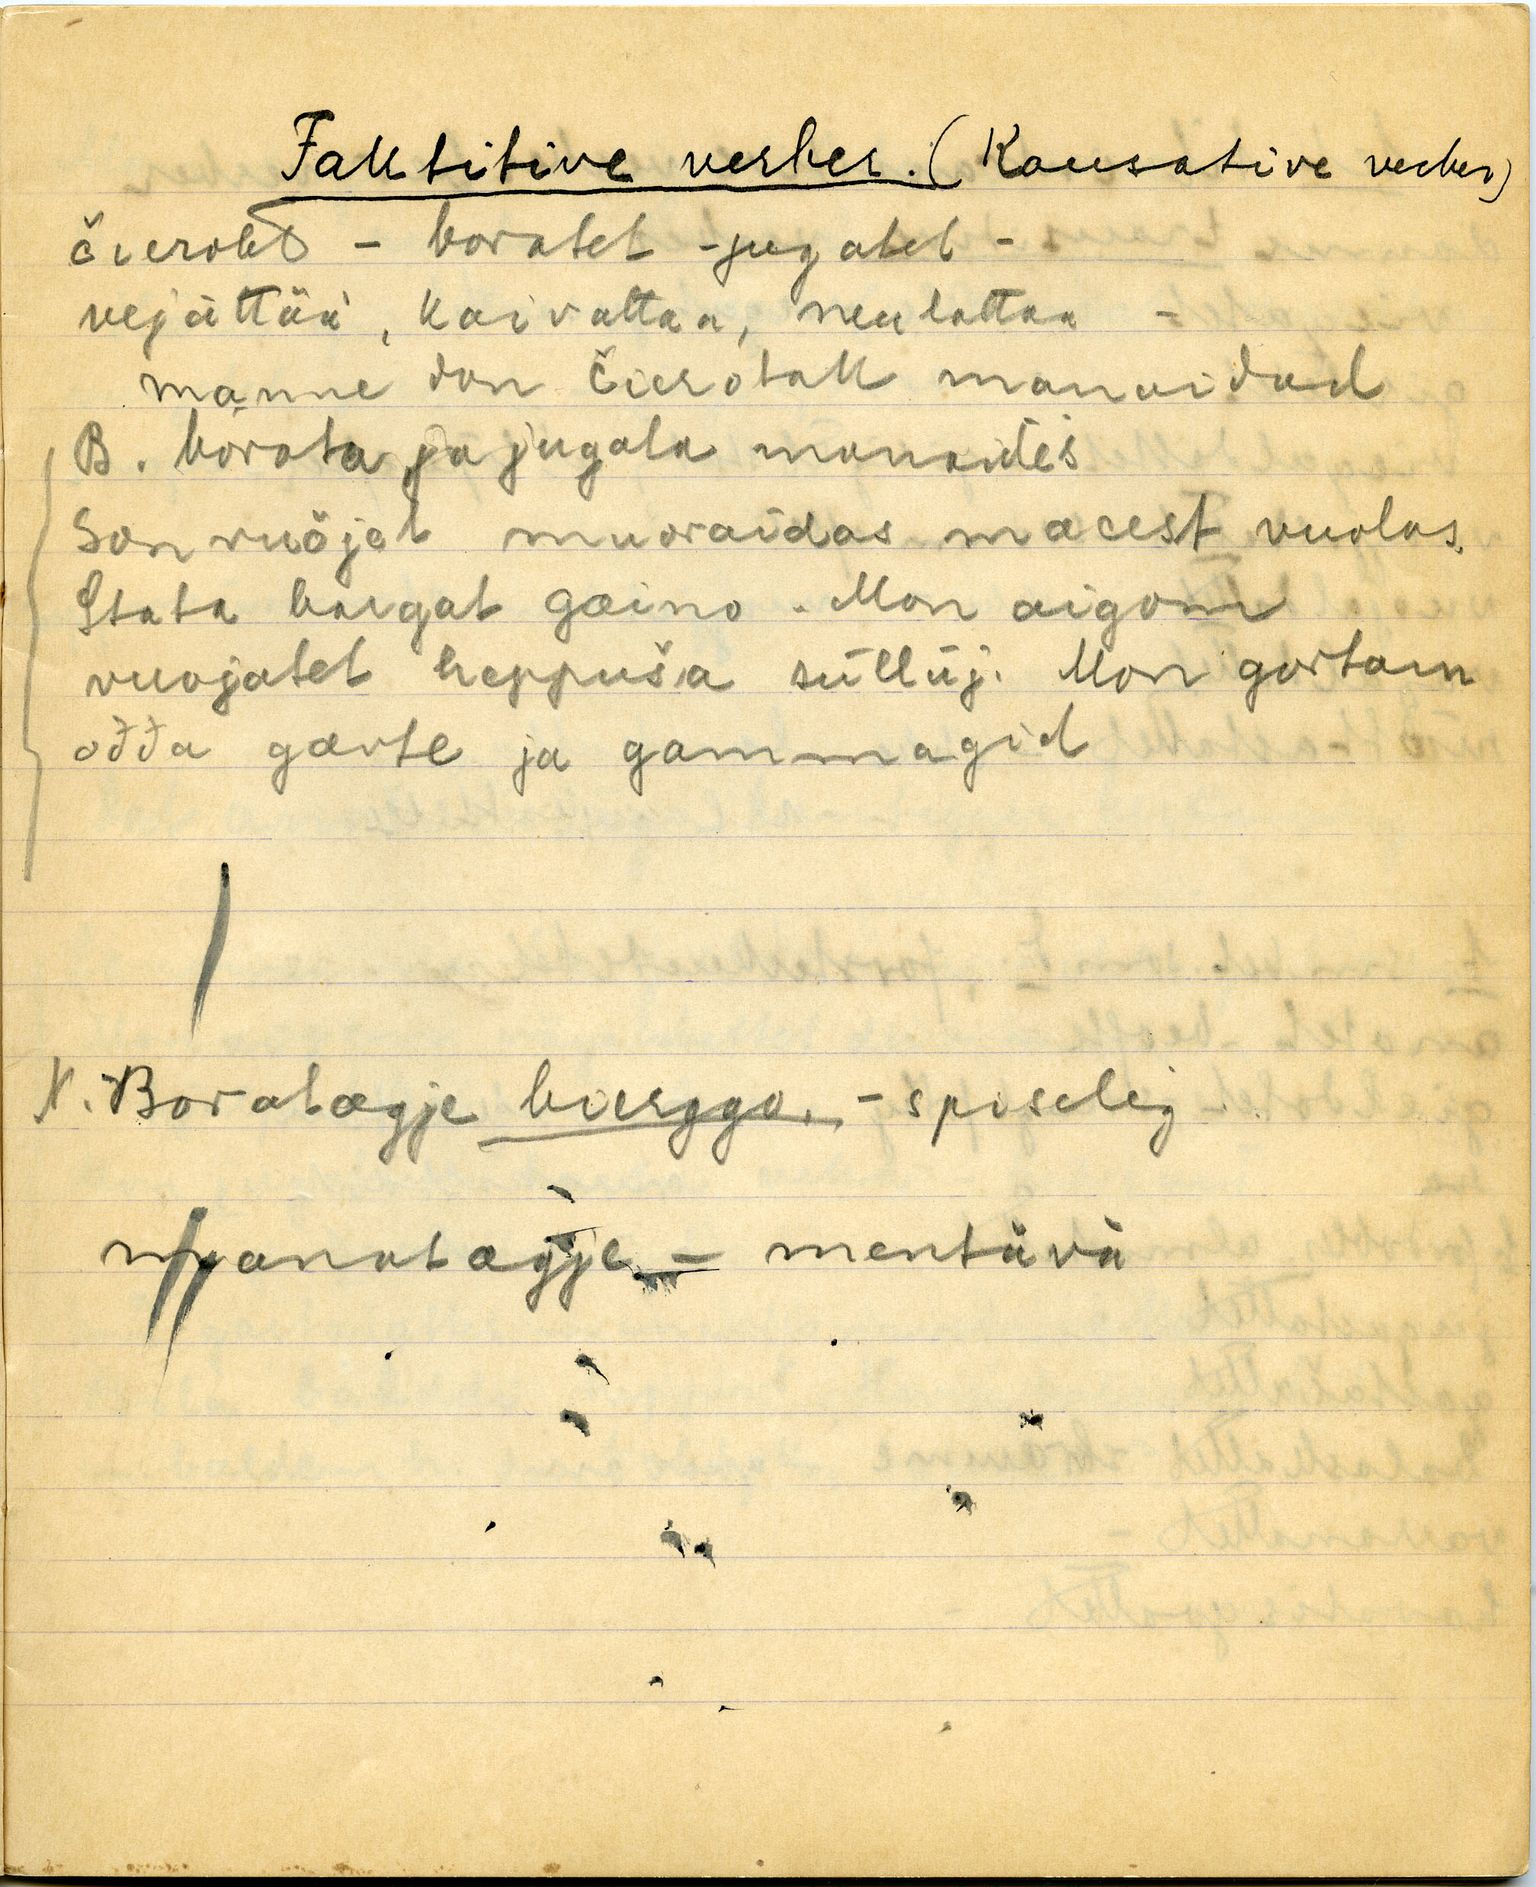 Faktitive verber. (Kausative verber)
čierotet – boratet - jugatet -
vejättää, kaivattaa, neulottaa -
manne don čierotak manaidad
B. borata ja jugata manaides
Son vuojat muoraidas mæcest vuolas.
Stata bargat gæino. Mon aigom
vuojatet heppuša sülliij. Mon gortam
ođđa gævte ja gammagid
N. Boratægje biergge. - spiselig
manatægje – mentävä